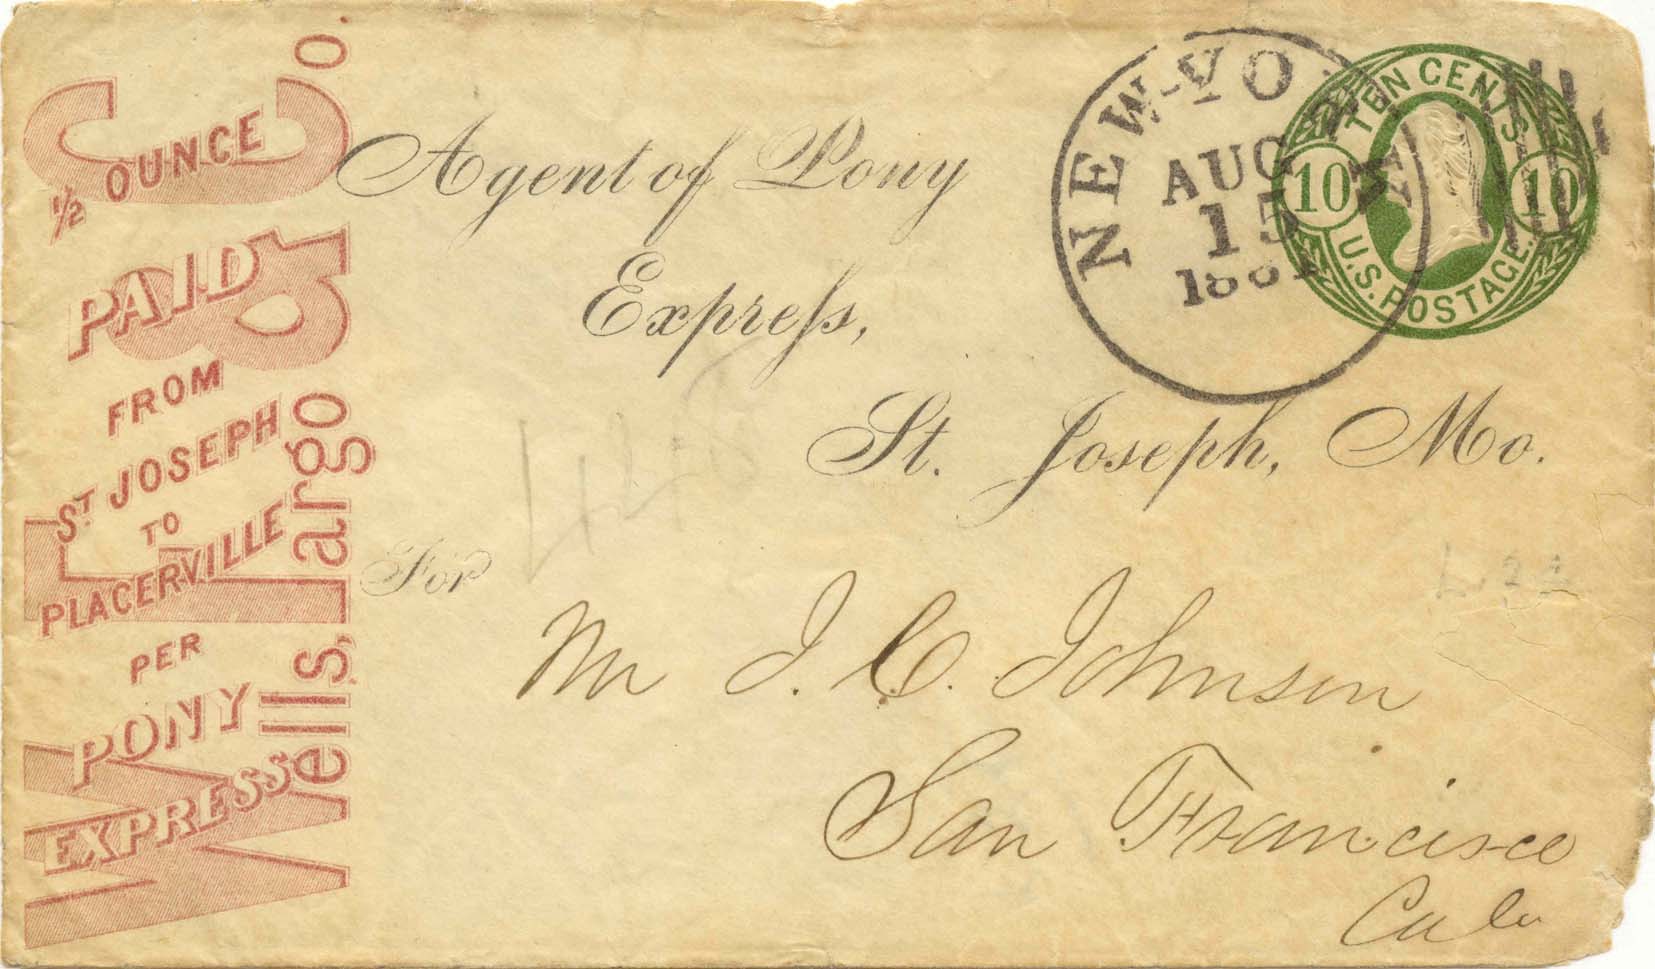 Wells, Fargo & Co.
½ OUNCE
PAID
FROM
ST JOSEPH
TO
PLACERVILLE
PER
PONY
EXPRESS
Agent of Pony
Express,
St. Joseph, Mo.
For
Mr J. C. Johnson
San Francisco
Cala
NEW-YO
AUG
15
1861
TEN CENTS
10 10
U.S. POSTAGE